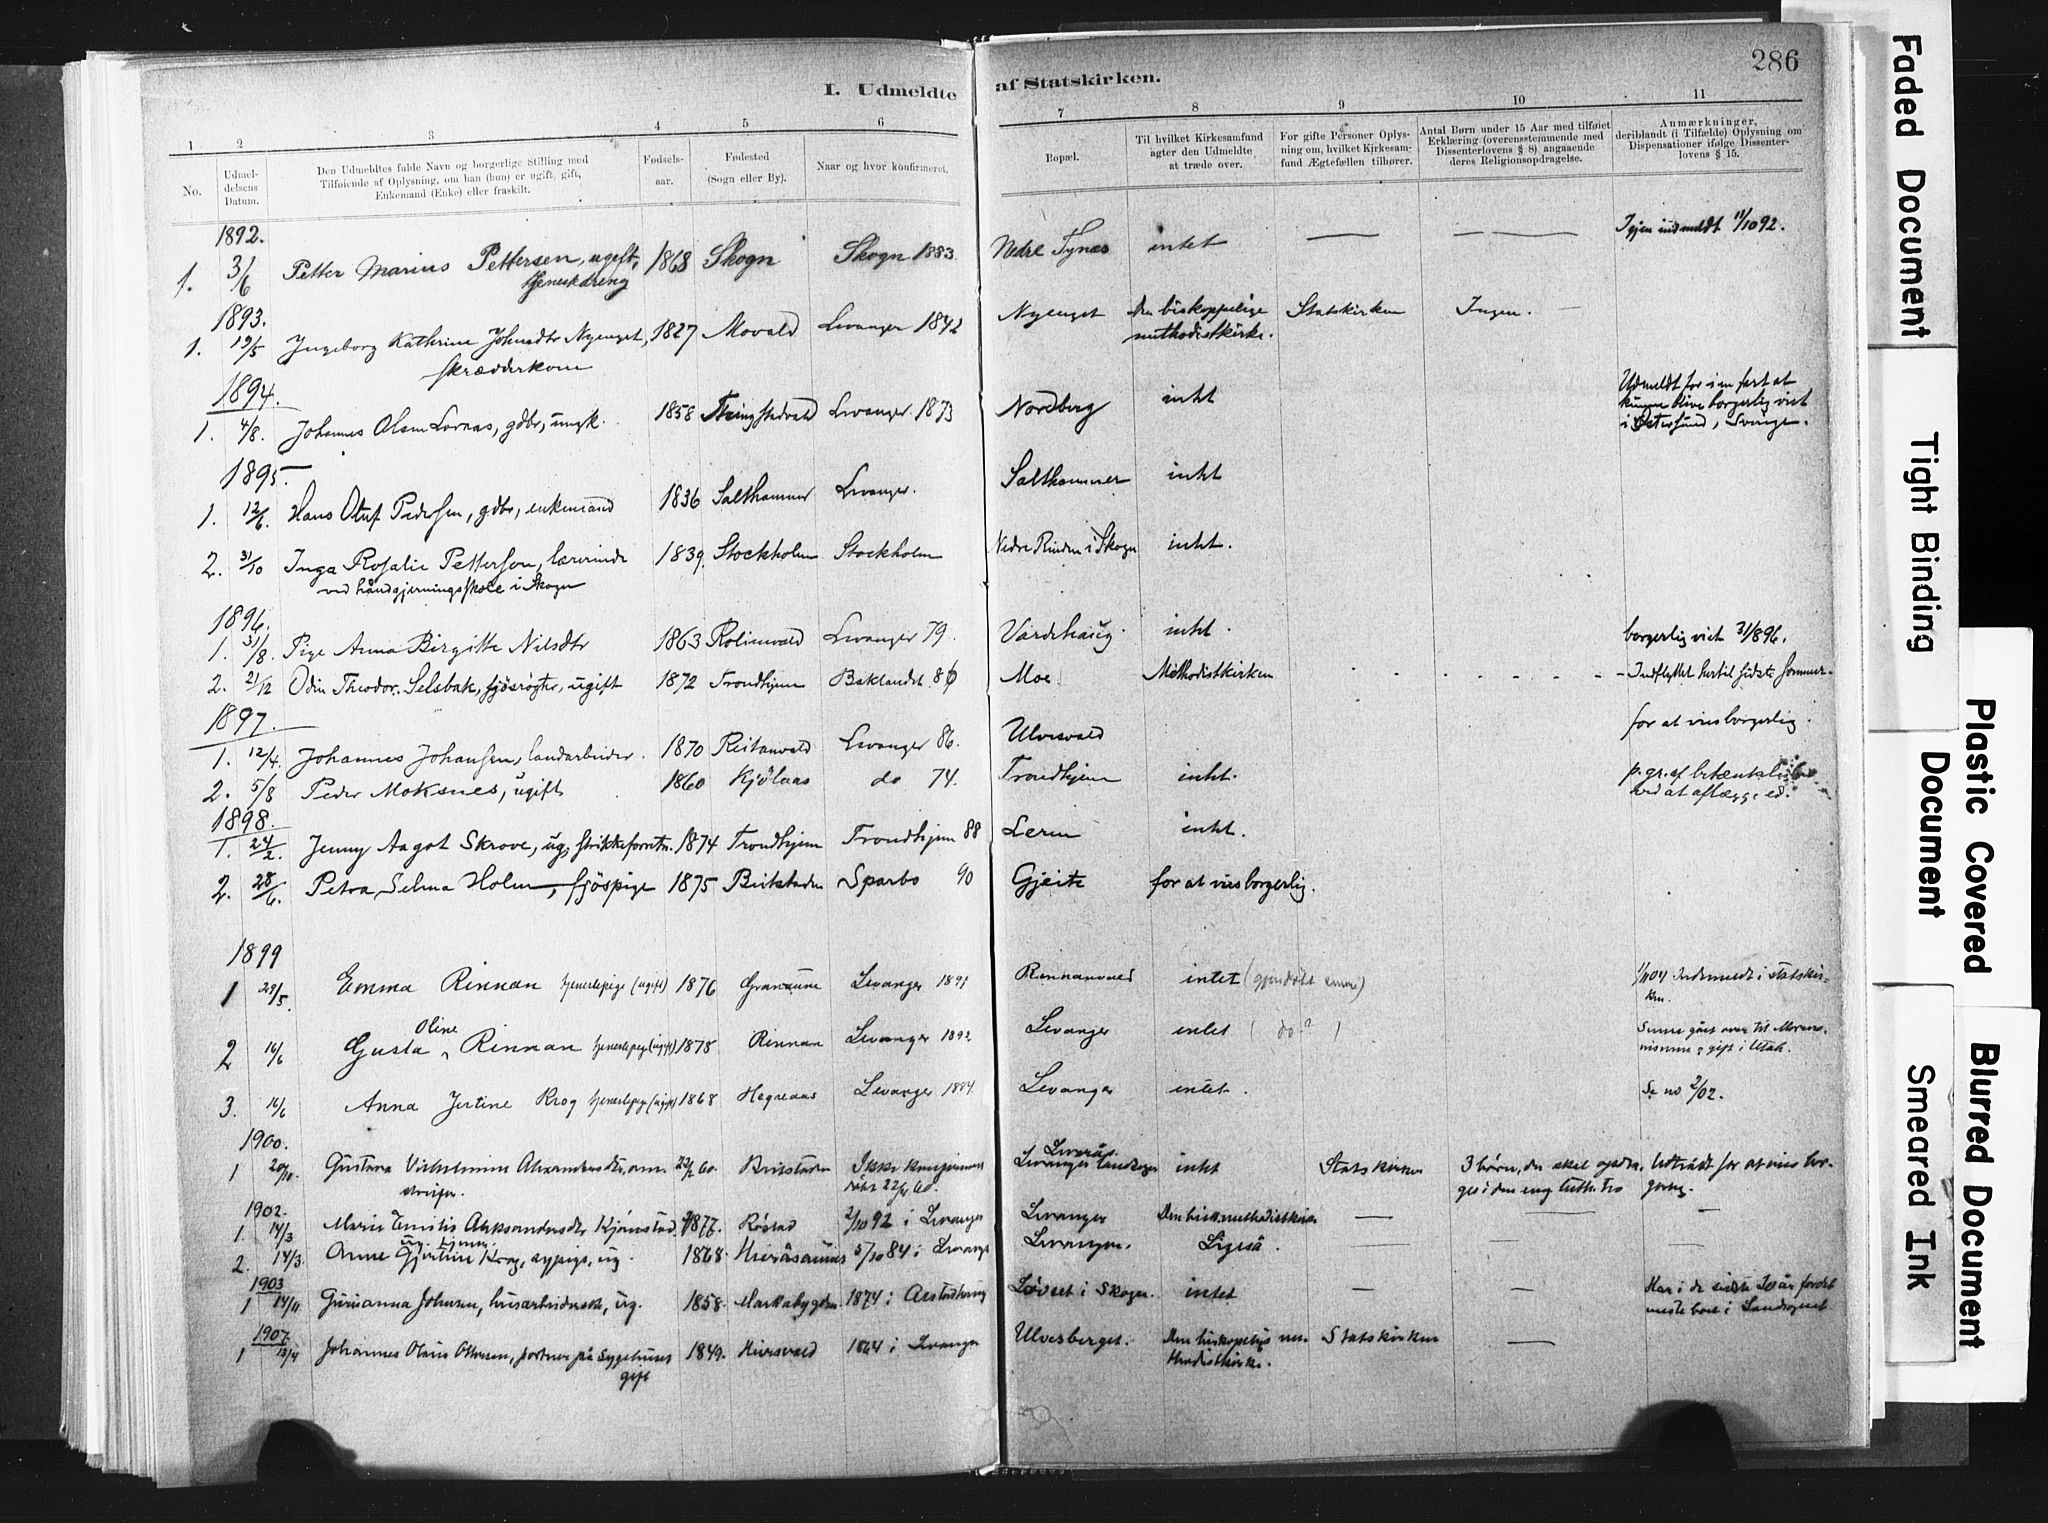 286
I. Udmeldte af Statskirken.
1 2 3 4 5 6 7 8 9 10 11
No.
Udmel-
delsens
Datum.
Den Udmeldtes fulde Navn og borgerlige Stilling med
Tilføiende af Oplysning, om han (hun) er ugift, gift,
Enkemand (Enke) eller fraskilt.
Fødsels-
aar.
Fødested
(Sogn eller By).
Naar og hvor konfirmeret.
Bopæl.
Til hvilket Kirkesamfund
agter den Udmeldte
at træde over.
For gifte Personer Oplys-
ning om, hvilket Kirkesam-
fund Ægtefællen tilhører.
Antal Børn under 15 Aar med tilføiet
Erklæring (overensstemmende med
Dissenterlovens § 8) angaaende
deres Religionsopdragelse.
Anmærkninger,
deriblandt (i Tilfælde) Oplysning om
Dispensationer ifølge Dissenter-
lovens § 15.
1892.
1. 3/6 Petter Marius Pettersen, ugift, 1868 Skogn Skogn 1883. Nedre Tynes intet — — Igjen indmeldt 11/10 92.
tjenestdreng
1893.
1. 19/5 Ingeborg Kathrine Johnsdtr Nyenget, 1827 Movald Levanger 1842 Nyenget Den biskoppelige Statskirken Ingen. —
skrædderkone methodistkirke.
1894.
1. 4/8. Johannes Olsen Lornæs, gdbr, ungk. 1858 Levanger 1873 Nordberg intet Udmeldt for i en fart at
kunne blive borgerlig viet
i Østersund, Sverige.
1895.
1. 12/6. Hans Oluf Pedersen, gdbr, enkemand 1836 Salthammer Levanger. Salthammer intet
2. 31/10 Inga Rosalie Petterson, lærerinde 1839. Stockholm Stockholm Nedre Rinden i Skogn intet.
ved håndgjerningsskole i Skogn
1896.
1. 31/8. Pige Anna Birgitte Nilsdtr 1863 Levanger 79. Vardehaug. intet. borgerlig viet 31/8 96.
2. 21/12 Odin Theodor Selsbak, fjøsrøgter, ugift 1872 Trondhjem Baklandet. Moe Methodistkirken - - - - - Indflyttet hertil sidste sommer.
1897.
1. 12/4. Johannes Johansen, landarbeider. 1870 Reitanvald Levanger 86. Ulvesvald for at vies borgerlig.
2. 5/8 Peder Moksnes, ugift 1860 Kjølaas do 74. Trondhjem intet. p. gr. af betænkelighed
ved at aflægge ed.
1898.
1. 24/2. Jenny Aagot Skrove, ug; strikkeforretn. 1874 Trondhjem Trondhjem 88 Leren intet.
2. 28/6. Petra Selma Holm, fjøspige 1875 Sparbo 90 Gjeite for at vies borgerlig.
1899
1 29/5. Emma Rinnan tjenestepige (ugift) 1876 Granaune Levanger 1891 Rinnanvald intet (gjendøbt ) 1/1 04 Indmeldt i statskir-
ken.
Oline
2 16/6 Gusta Rinnan tjenestepige (ugift) 1878 Rinnan Levanger 1892 Levanger intet ( do? ) Senere gået over til Mormo-
nismen, gift i Utah.
3. 16/6 Anna Jertine Krog tjenestepige (ugift) 1868 Hegreaas Levanger 1884. Levanger intet. Se no 2/02.
1900.
1 20/10. Gustava Vilhelmine 22/2 60. Ikke konfirmeret Levanger landsogn intet Statskirken 3 børn, der skal opdra- Udtrådt for at vies bor-
ges i den evg. luth. tro gerlig.
1902.
1. 14/3 Marie Emilie Aleksandersdtr Kjønstad 1877. Røstad 2/10 92 i Levanger Levanger Den bisk. methodistkirke — — —
2. 14/3. Anne Gjertine Krog, sypige, ug. 1868. 5/10 84 i Levanger Levanger. Ligeså — —
1903
1 14/11 Gurianna Johnsen, husarbeiderske, ug. 1858. Markabygden 1874 i Løvset i Skogn. intet — — Har i de sidste 20 år fordet
meste boet i Landsognet
1907.
1 13/4 Johannes Olaus Ottersen, portner på Sygehuset 1849. 1864 i Levanger Ulvesberget. Den biskopelige me- Statskirken —
gift thodistkirke.
Faded Document
Tight Binding
Plastic Covered
Document
Blurred Document
Smeared Ink